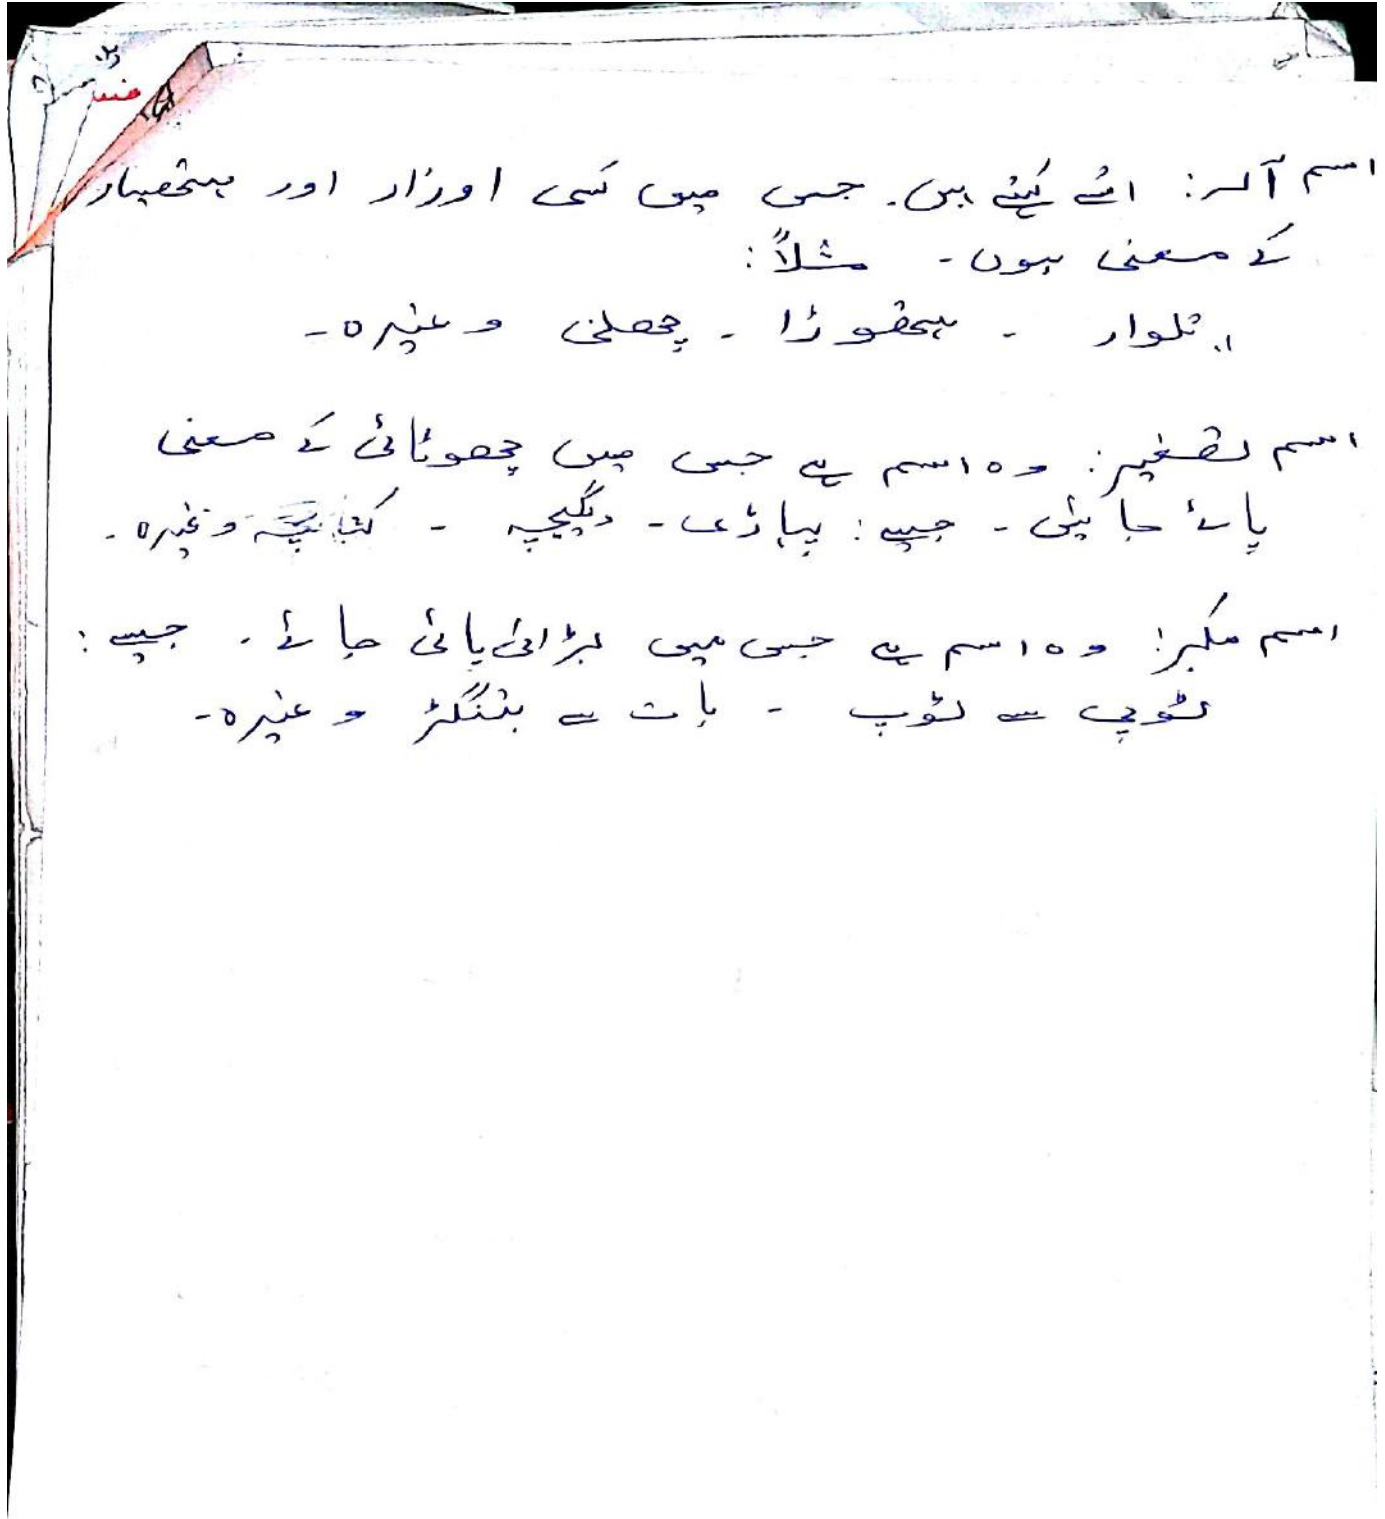 اسم آلہ: اسے کہتے ہیں۔ جس میں کسی اوزار اور ہتھیار
کے معنی ہوں۔ مثلاً:
تلوار ۔ ہتھوڑا ۔ چھلنی وغیرہ۔
اسم تصغیر: وہ اسم ہے جس میں چھوٹائی کے معنی
پائے جائیں ۔ جیسے: پہاڑی ۔ دیگچہ ۔ کتابچہ وغیرہ۔
اسم مکبر: وہ اسم ہے جس میں بڑائی پائی جائے ۔ جیسے:
ٹوپی سے ٹوپ ۔ بات سے بتنگڑ وغیرہ۔